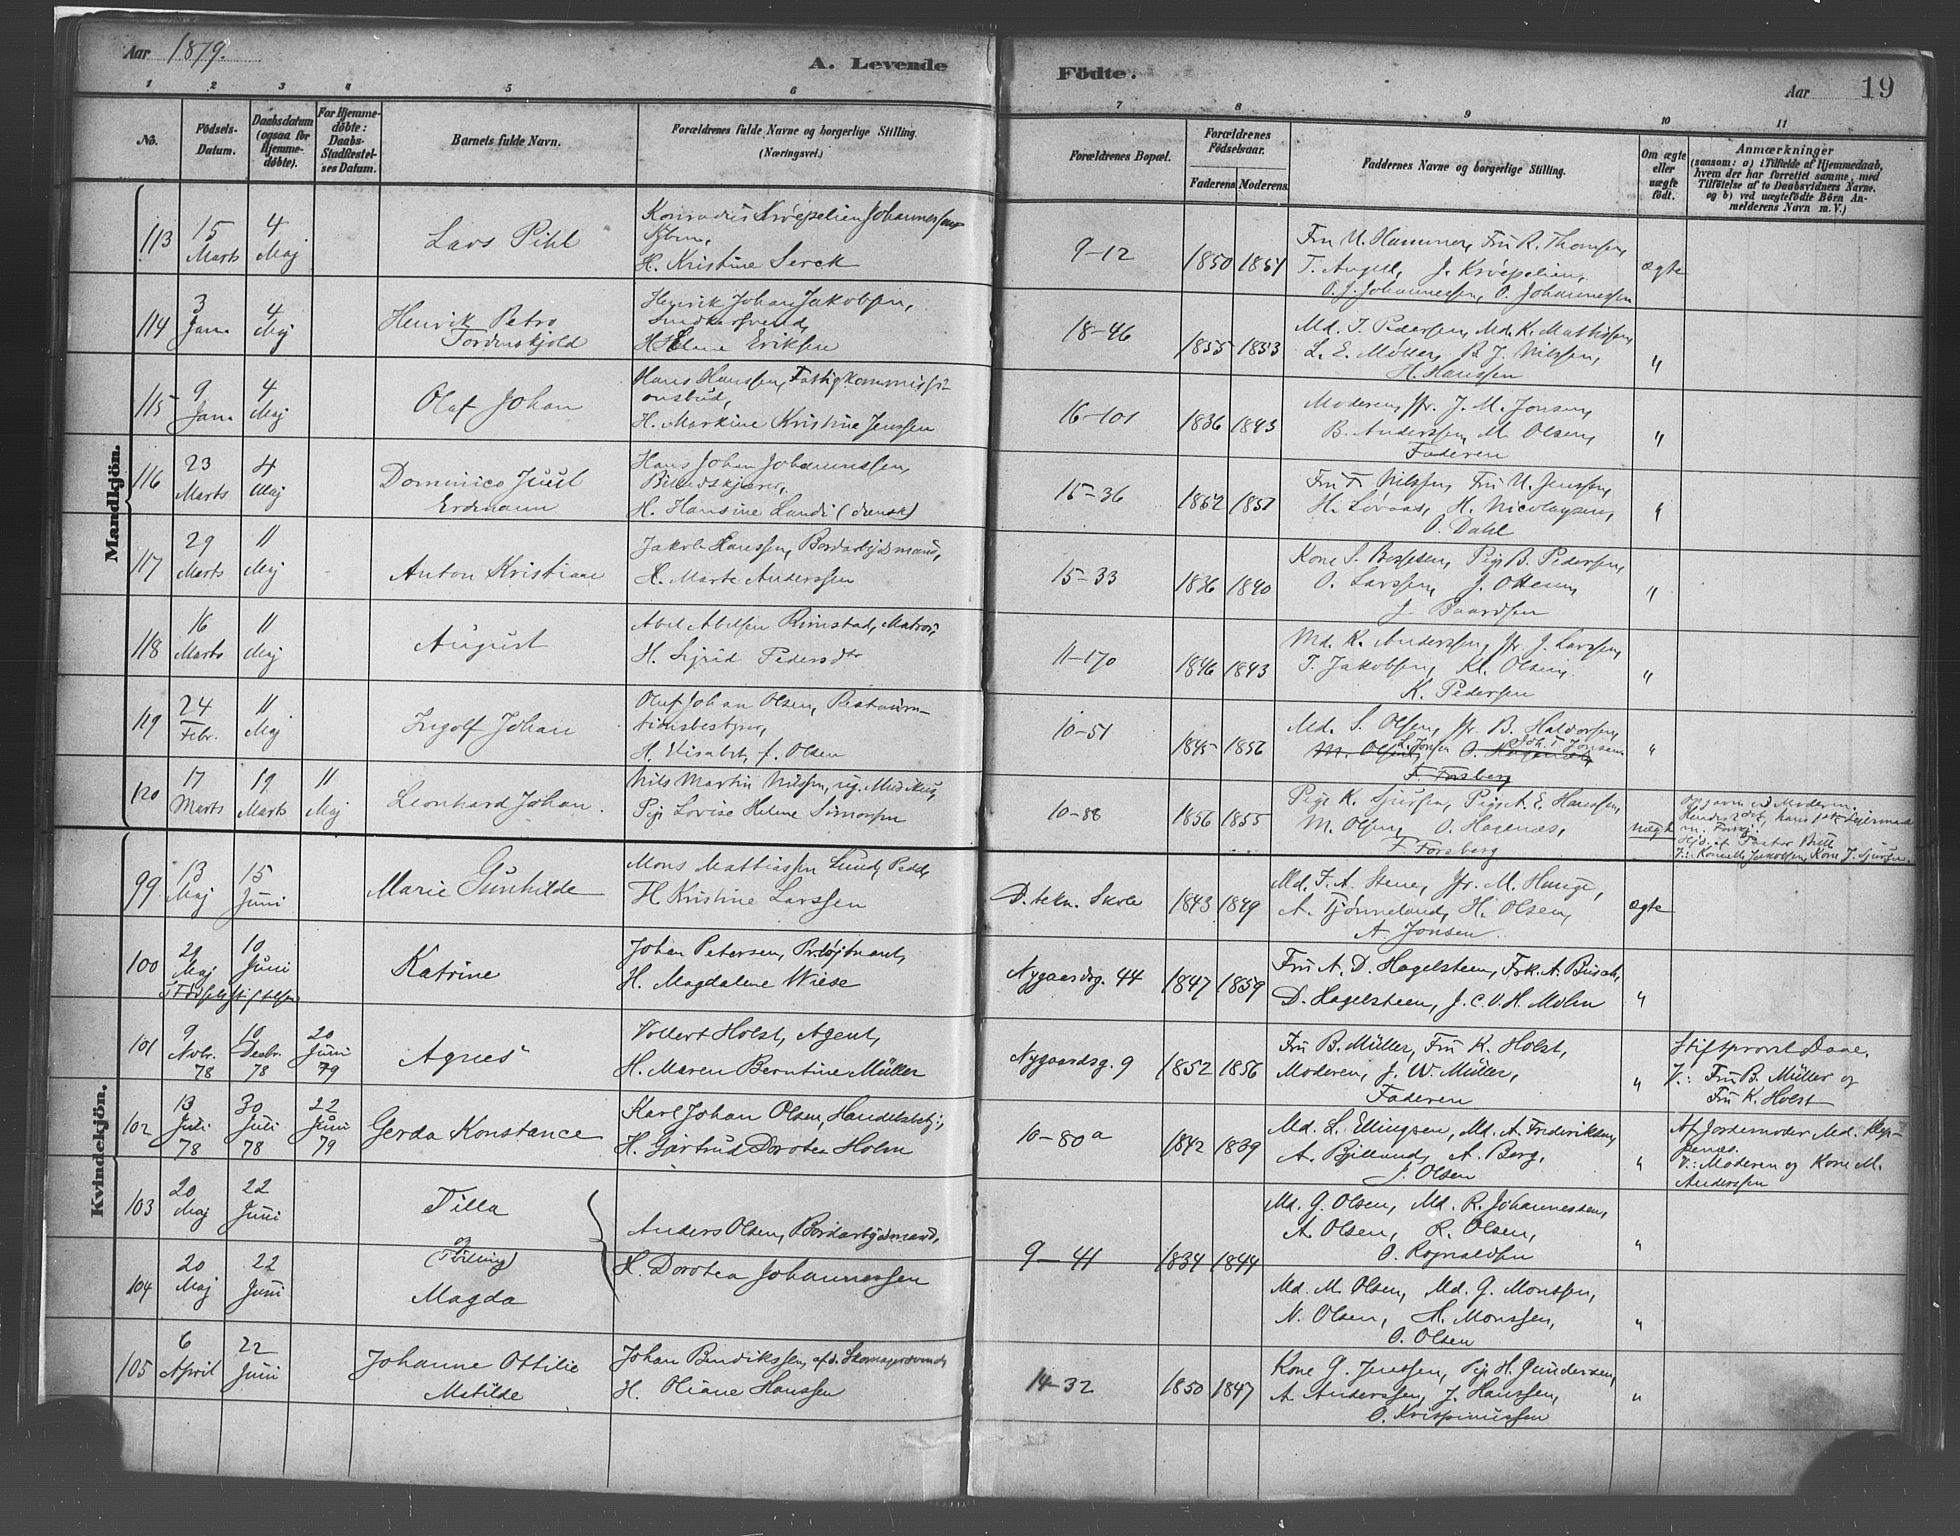 Aar 1879.
A. Levende
Födte.
Aar
19
1 2 3 4 5 6
7 8 9 10 11
No.
Födsels-
Datum.
Daabsdatum
(ogsaa for
Hjemme-
döbte).
For Hjemme-
döbte:
Daabs-
Stadfæstel-
ses Datum.
Barnets fulde Navn.
Forældrenes fulde Navne og borgerlige Stilling.
(Næringsvei.)
Forældrenes Bopæl.
Forældrenes
Födselsaar.
Faderens. Moderens.
Faddernes Navne og borgerlige Stilling.
Om ægte
eller
uægte
født.
Anmærkninger
(saasom: a) i Tilfælde af Hjemmedaab,
hvem der har forrettet samme, med
Tilföielse af to Daabsvidners Navne.
og b) ved uægtefödte Börn An-
melderens Navn m. V.)
Mandkjön.
113
15
Marts
4
Maj
Lars Pihl
Konradus Krøepelien Johannessen
H. Kristine Serck
9-12
1850 1851
Fru U. Hammer, Fru R. Thomsen,
T. August, J. Krøepelien,
O. J. Johannessen, O. Johannessen
ægte
114
3
Jan.
4
Maj
Henrik Petro
Tordenskjold
Henrik Johan Jakobsen,
Snedkersvend,
H. Eline Eriksen
18-46
1855 1853
Md. T. Pedersen, Md. K. Mathisen,
L. E. Møller, B. J. Nilssen,
H. Hanssen
"
115
9
Jan.
4
Maj
Olaf Johan
Hans Hanssen, Fattigkommissi-
onsbud,
H. Martine Kristine Jenssen
16-101
1836 1843
Moderen, Jfr. J. M. Jonsen,
B. Anderssen, M. Olsen,
Faderen
"
116
23
Marts
4
Maj
Dominico Juul
Erdmann
Hans Johan Johannessen,
Billedskjærer,
H. Hansine Lund (dansk)
15-36
1852 1851
Nilssen, Fru U. Jenssen,
H. Løvaas, H. Nicolaysen,
O. Dahl
"
117
29
Marts
11
Maj
Anton Kristian
Jakob Hanssen, Bordarbejdsmand,
H. Marte Anderssen
15-33
1836 1840
Kone S. Pige B. Pedersen,
O. Larssen, J. Olsen,
J. Baardsen
"
118
16
Marts
11
Maj
August
Abel Abelsen Rimstad, Matros,
H. Sigrid Pedersdtr
11-170
1846 1843
Md. K. Anderssen, Jfr. J. Larssen,
T. Jakobsen, Kl. Olsen,
K. Pedersen
"
119
24
Febr.
11
Maj
Ingolf Johan
Olaf Johan Olsen, Restaura-
tionsbestyrer,
H. Elisabet, f. Olsen
10-51
1845 1856
Md. S. Olsen, Jfr. B. Haldorsen,
L. Jonsen Joh. T. Jonsen
M. Olsen, O. Hagenæs,
F. Forsberg
"
120
17
Marts
19
Marts
11
Maj
Leonhard Johan
Nils Martin Nilssen, rg. Musikus,
Pige Lovise Helene Simonsen
10-88
1856 1855
Pige K. Sjursen, Pige A. E. Hanssen,
M. Olsen, O. Hagenæs,
F. Forsberg
uægte
Opgaven ved Moderen.
Hjd. af Pastor
Kone J. Sjursen.
Kvindekjön.
99
13
Maj
15
Juni
Marie Gunhilde
Mons Mattiassen Lund, Pedel,
H. Kristine Larssen
D. tekn. Skole
1843 1849
Md. F. A. Stene, Jfr. M. Hauge,
A. Tjønneland, H. Olsen,
A. Jonsen.
ægte
100
21
Maj
10
Juni
Katrine
Johan Petersen, Pr.løjtnant,
H. Magdalene Wiese
Nygaardsg. 44
1847 1859
Fru A. D. Hagelsteen, Frk. A. Busch,
D. Hagelsteen, J. C. V. H. Mohn
"
101
9
Nvbr.
78
10
Decbr.
78
20
Juni
79
Agnes
Vollert Holst, Agent,
H. Maren Berntine Müller
Nygaardsg. 9
1852 1856
Fru B. Müller, Fru K. Holst,
Moderen, J. W. Müller,
Faderen
"
Stiftsprovst Daae.
V.: Fru B. Müller og
Fru K. Holst
102
13
Juli
78
30
Juli
78
22
Juni
79
Gerda Konstance
Karl Johan Olsen, Handelsbetj.,
H. Gjertrud Dorotea Holm
10-80a
1842 1839
Md. L. Ellingsen, Md. A. Frederiksen,
A. Bjelland, A. Berg,
J. Olsen
"
Af Jordemoder Md.
V.: Moderen og Kone M.
Anderssen
103
20
Maj
22
Juni
Tilla
og
(Tvilling)
Anders Olsen, Bordarbejdsmand,
H. Dorotea Johannessen
9-41
1834 1844
Md. G. Olsen, Md. R. Johannessen,
A. Olsen, R. Olsen,
O. Rognaldsen
"
104
20
Maj
22
Juni
Magda
Md. M. Olsen, Md. G. Monssen,
N. Olsen, H. Monssen,
O. Olsen
"
105
6
April
22
Juni
Johanne Ottilie
Matilde
Johan Bendikssen, afd. Skomagersvend,
H. Oliane Hanssen
14-32
1850 1847
Kone G. Jenssen, Pige H. Gundersen,
A. Anderssen, J. Hanssen,
O. Krispinussen
"